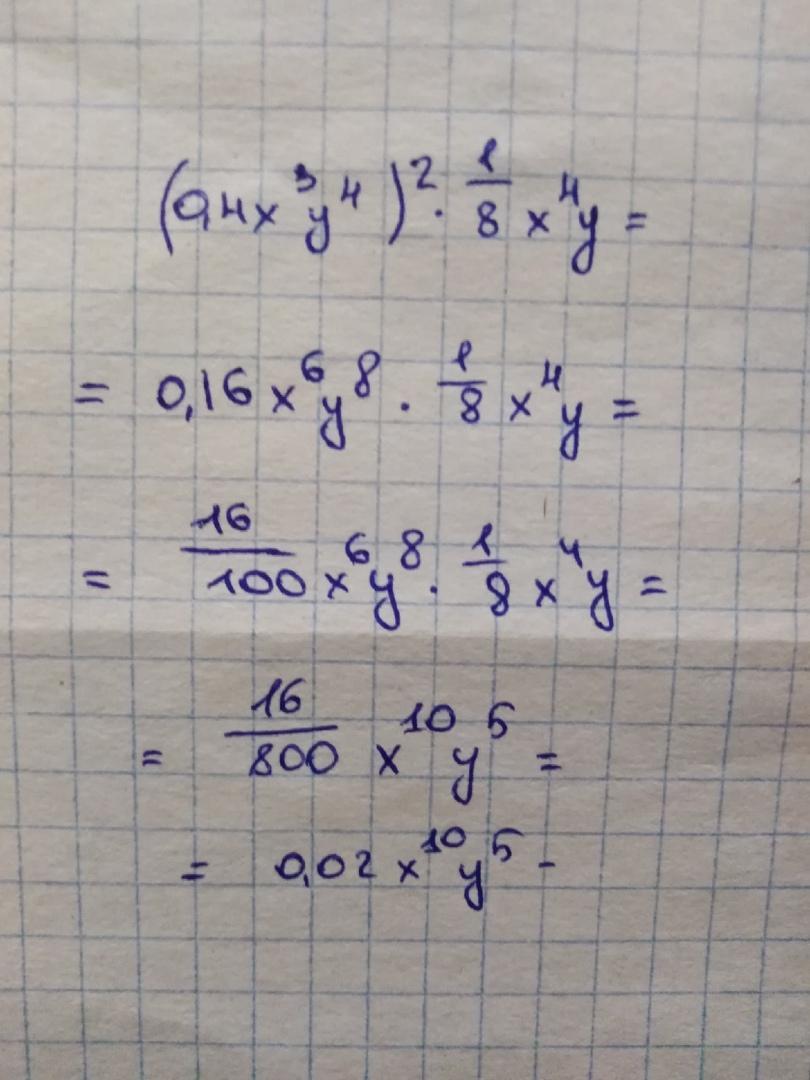 (0,4x³y⁴)² · 1/8 x⁴y =
= 0,16x⁶y⁸ · 1/8 x⁴y =
= 16/100 x⁶y⁸ · 1/8 x⁴y =
= 16/800 x¹⁰y⁵ =
= 0,02x¹⁰y⁵ -